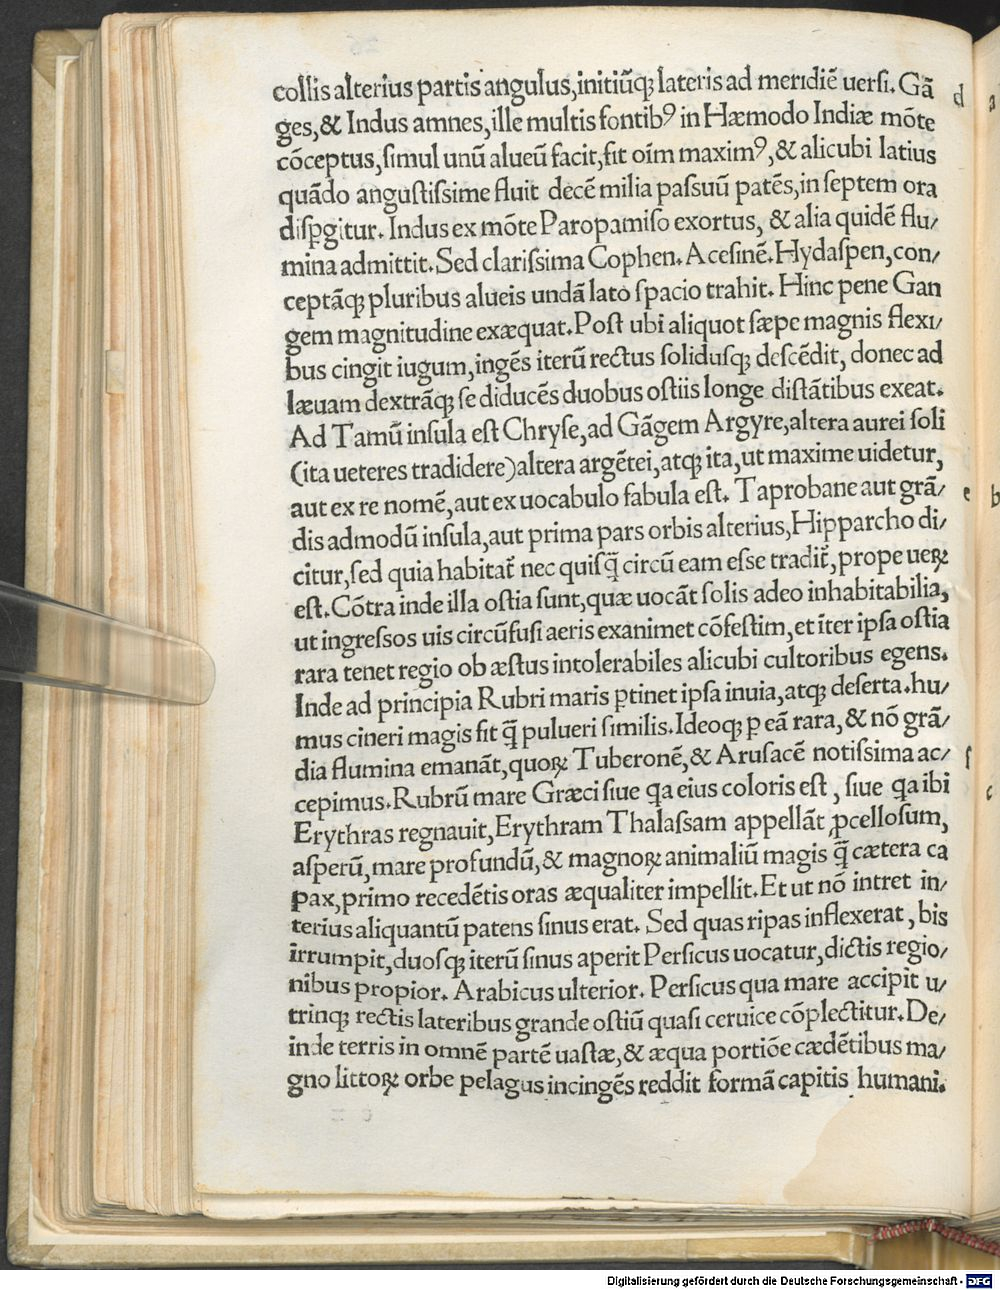 collis alterius partis angulus,initiūq; lateris ad meridiē uersi. Gā
ges,& Indus amnes,ille multis fontibꝰ in Hæmodo Indiæ mōte
cōceptus,simul unū alueū facit,fit oīm maximꝰ,& alicubi latius
quādo angustissime fluit decē milia passuū patēs,in septem ora
disꝑgitur. Indus ex mōte Paropamiso exortus, & alia quidē flu/
mina admittit.Sed clarissima Cophen.Acesinē.Hydaspen,con/
ceptāq; pluribus alueis undā lato spacio trahit. Hinc pene Gan
gem magnitudine exæquat.Post ubi aliquot sæpe magnis flexi/
bus cingit iugum,ingēs iterū rectus solidusq; descēdit, donec ad
læuam dextrāq; se diducēs duobus ostiis longe distātibus exeat.
Ad Tamū insula est Chryse,ad Gāgem Argyre,altera aurei soli
(ita ueteres tradidere)altera argētei,atq; ita,ut maxime uidetur,
aut ex re nomē,aut ex uocabulo fabula est. Taprobane aut grā/
dis admodū insula,aut prima pars orbis alterius,Hipparcho di/
citur,sed quia habitat̄ nec quisq̄ circū eam esse tradit̄,prope ueꝝ
est.Cōtra inde illa ostia sunt,quæ uocāt solis adeo inhabitabilia,
ut ingressos uis circūfusi aeris exanimet cōfestim,et īter ipsa ostia
rara tenet regio ob æstus intolerabiles alicubi cultoribus egens.
Inde ad principia Rubri maris ꝑtinet ipsa inuia,atq; deserta.hu/
mus cineri magis fit q̄ pulueri similis.Ideoq; ꝑ eā rara, & nō grā/
dia flumina emanāt,quoꝝ Tuberonē,& Arusacē notissima ac/
cepimus.Rubrū mare Græci siue qa eius coloris est, siue qa ibi
Erythras regnauit,Erythram Thalassam appellāt ꝓcellosum,
asperū,mare profundū,& magnoꝝ animaliū magis q̄ cætera ca
pax,primo recedētis oras æqualiter impellit.Et ut nō intret in/
terius aliquantū patens sinus erat. Sed quas ripas inflexerat, bis
irrumpit,duosq; iterū sinus aperit Persicus uocatur,dictis regio/
nibus propior. Arabicus ulterior. Persicus qua mare accipit u/
trinq; rectis lateribus grande ostiū quasi ceruice cōplectitur.De/
inde terris in omnē partē uastæ,& æqua portiōe cædētibus ma/
gno littoꝝ orbe pelagus incingēs reddit formā capitis humani.
d
a
e
b
f
c
Digitalisierung gefördert durch die Deutsche Forschungsgemeinschaft - DFG